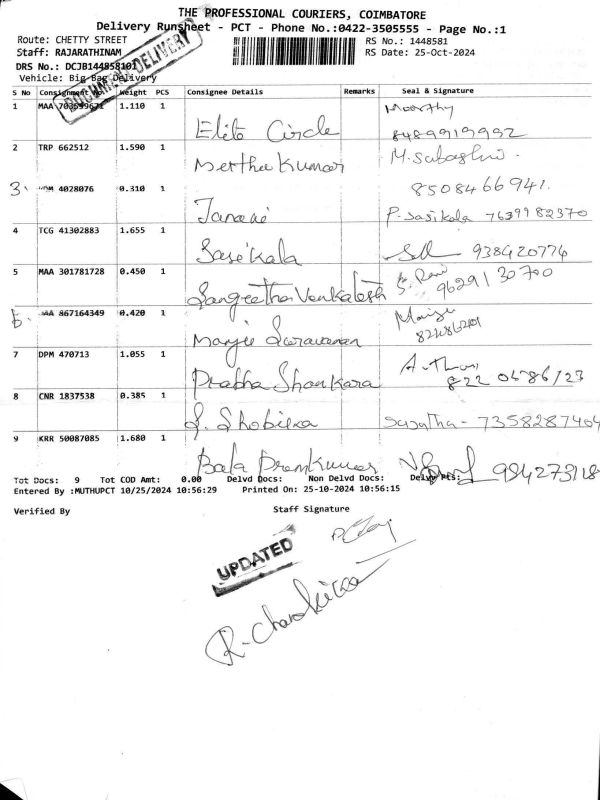 THE PROFESSIONAL COURIERS, COIMBATORE
Delivery Runsheet - PCT - Phone No.:0422-3505555 - Page No.:1
Route: CHETTY STREET RS No.: 1448581
Staff: RAJARATHINAM RS Date: 25-Oct-2024
DRS No.: DCJB144858101
Vehicle: Big Bag Delivery
DOCUMENT DELIVERY
S No Consignment No. Weight PCS Consignee Details Remarks Seal & Signature
1 MAA 1.110 1 Elite Circle Moorthy 8489919992
2 TRP 662512 1.590 1 Mertha Kumar M. 8508466941.
3. 4028076 0.310 1 Janani P. Sasikala 7639982370
4 TCG 41302883 1.655 1 Sasikala 938420774
5 MAA 301781728 0.450 1 Sangeetha Venkatesh 9629130700
6. 867164349 0.420 1 Manju Saravanan
7 DPM 470713 1.055 1 Prabha Shankara
8 CNR 1837538 0.385 1 S. Shobika Sujatha - 7358287404
9 KRR 50087085 1.680 1 Bala Premkumar
Tot Docs: 9 Tot COD Amt: 0.00 Delvd Docs: Non Delvd Docs: Delvd Pts:
Entered By :MUTHUPCT 10/25/2024 10:56:29 Printed On: 25-10-2024 10:56:15
Verified By Staff Signature
UPDATED